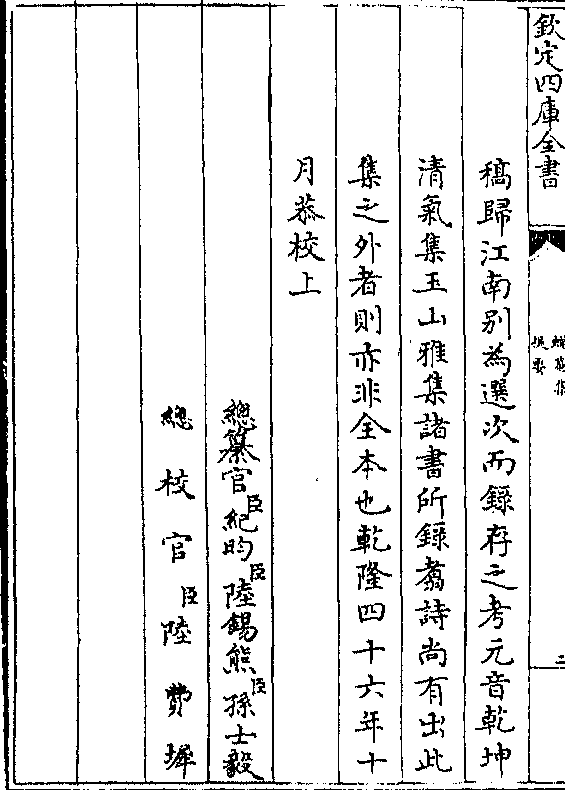 欽定四庫全書
提要
稿歸江南别為選次而錄存之考元音乾坤
清氣集玉山雅集諸書所錄翥詩尚有出此
集之外者則亦非全本也乾隆四十六年十
月恭校上
總纂官臣紀昀臣陸錫熊臣孫士毅
總校官臣陸費墀